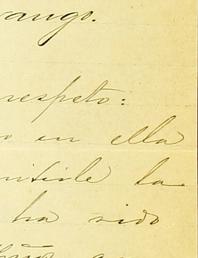 rango.
respeto:
o en ella
mitirle la
ha sido